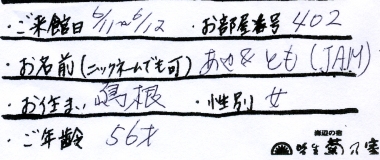 ・ご来館日 6/11〜6/12 ・お部屋番号 402
・お名前(ニックネームでも可) あや&とも(JAM)
・お住まい 島根 ・性別 女
・ご年齢 56才
海辺の宿